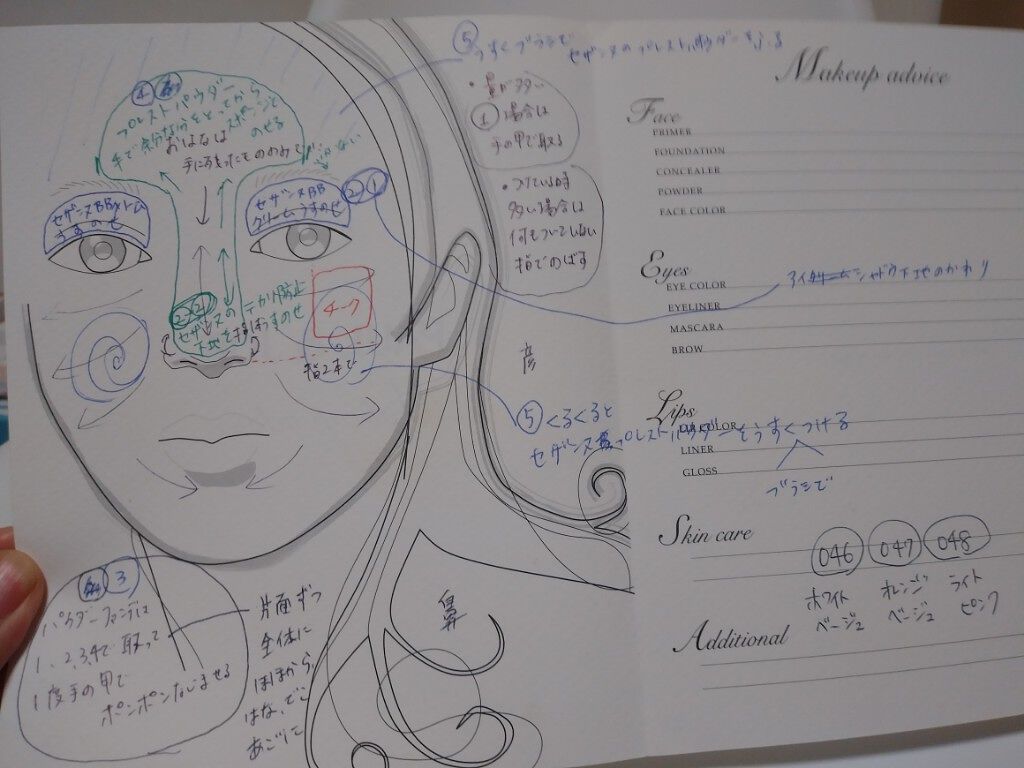 ⑤うすくブラシで
セザンヌのプレストパウダーをふる
④
プレストパウダー
手で余分なのをとってから
おはなは スポンジで
のせる
手に残ったもののみで
・量が多い
①場合は
手の甲で取る
・つけている時
多い場合は
何もついていない
指でのばす
セザンヌBBクリーム
うすのせ
セザンヌBB
クリームうすのせ
②-①
アイシャドウ下地のかわり
②-②
セザンヌのテカリ防止
下地を指でうすのせ
チーク
指2本で
彦
⑤くるくると
セザンヌプレストパウダーをうすくつける
ブラシで
鼻
③
パウダーファンデは
1、2、3、4で取って
1度手の甲で
ポンポンなじませる
片面ずつ
全体に
ほほから、
はな、でこ
あごに
Makeup advice
Face
PRIMER
FOUNDATION
CONCEALER
POWDER
FACE COLOR
Eyes
EYE COLOR
EYELINER
MASCARA
BROW
Lips
LIP COLOR
LINER
GLOSS
Skin care
046 047 048
ホワイト オレンジ ライト
ベージュ ベージュ ピンク
Additional